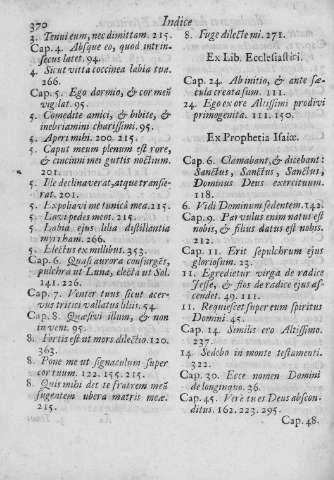 370
Indice
3. Tenui eum, nec dimittam. 215.
Cap. 4. Absque eo, quod intrin-
secus latet. 94.
4. Sicut vitta coccinea labia tua.
266.
Cap. 5. Ego dormio, & cor meũ
vigilat. 95.
5. Comedite amici, & bibite, &
inebriamini charissimi. 95.
5. Aperi mihi. 200. 215.
5. Caput meum plenum est rore,
& cincinni mei guttis noctium.
201.
5. Ille declinaverat, atque transie-
rat. 201.
5. Expoliavi me tunicâ mea. 215.
5. Lavi pedes meos. 215.
5. Labia ejus lilia distillantia
myrrham. 266.
5. Electus ex millibus. 353.
Cap. 6. Quasi aurora consurgẽs,
pulchra ut Luna, electa ut Sol.
141. 226.
Cap. 7. Venter tuus sicut acer-
vus tritici vallatus liliis. 54.
Cap. 8. Quæsivi illum, & non
inveni. 95.
8. Fortis est ut mors dilectio. 120.
363.
8. Pone me ut signaculum super
cor tuum. 122. 155. 215.
8. Quis mihi det te fratrem meũ
sugentem ubera matris meæ.
215.
8. Fuge dilecte mi. 271.
Ex Lib. Ecclesiastici.
Cap. 24. Ab initio, & ante sæ-
cula creata sum. 111.
24. Ego ex ore Altissimi prodivi
primogenita. 111. 150.
Ex Prophetia Isaiæ.
Cap. 6. Clamabant, & dicebant:
Sanctus, Sanctus, Sanctus,
Dominus Deus exercituum.
118.
6. Vidi Dominum sedentem. 142.
Cap. 9. Parvulus enim natus est
nobis, & filius datus est nobis.
212.
Cap. 11. Erit sepulchrum ejus
gloriosum. 23.
11. Egredietur virga de radice
Jesse, & flos de radice ejus as-
cendet. 49. 111.
11. Requiescet super eum spiritus
Domini. 45.
Cap. 14. Similis ero Altissimo.
237.
14. Sedebo in monte testamenti.
322.
Cap. 30. Ecce nomen Domini
de longinquo. 36.
Cap. 45. Verè tu es Deus abscon-
ditus. 162. 223. 295.
Cap. 48.